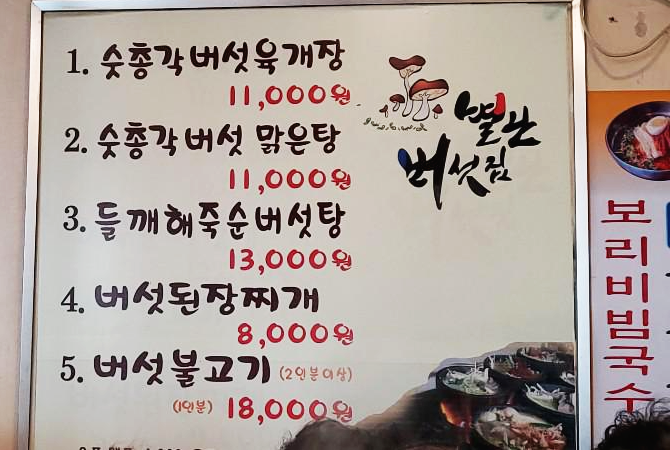 1. 숫총각버섯육개장
11,000원
2. 숫총각버섯 맑은탕
11,000원
3. 들깨해죽순버섯탕
13,000원
4. 버섯된장찌개
8,000원
5. 버섯불고기 (2인분이상)
(1인분) 18,000원
별난
버섯집
보리비빔국수